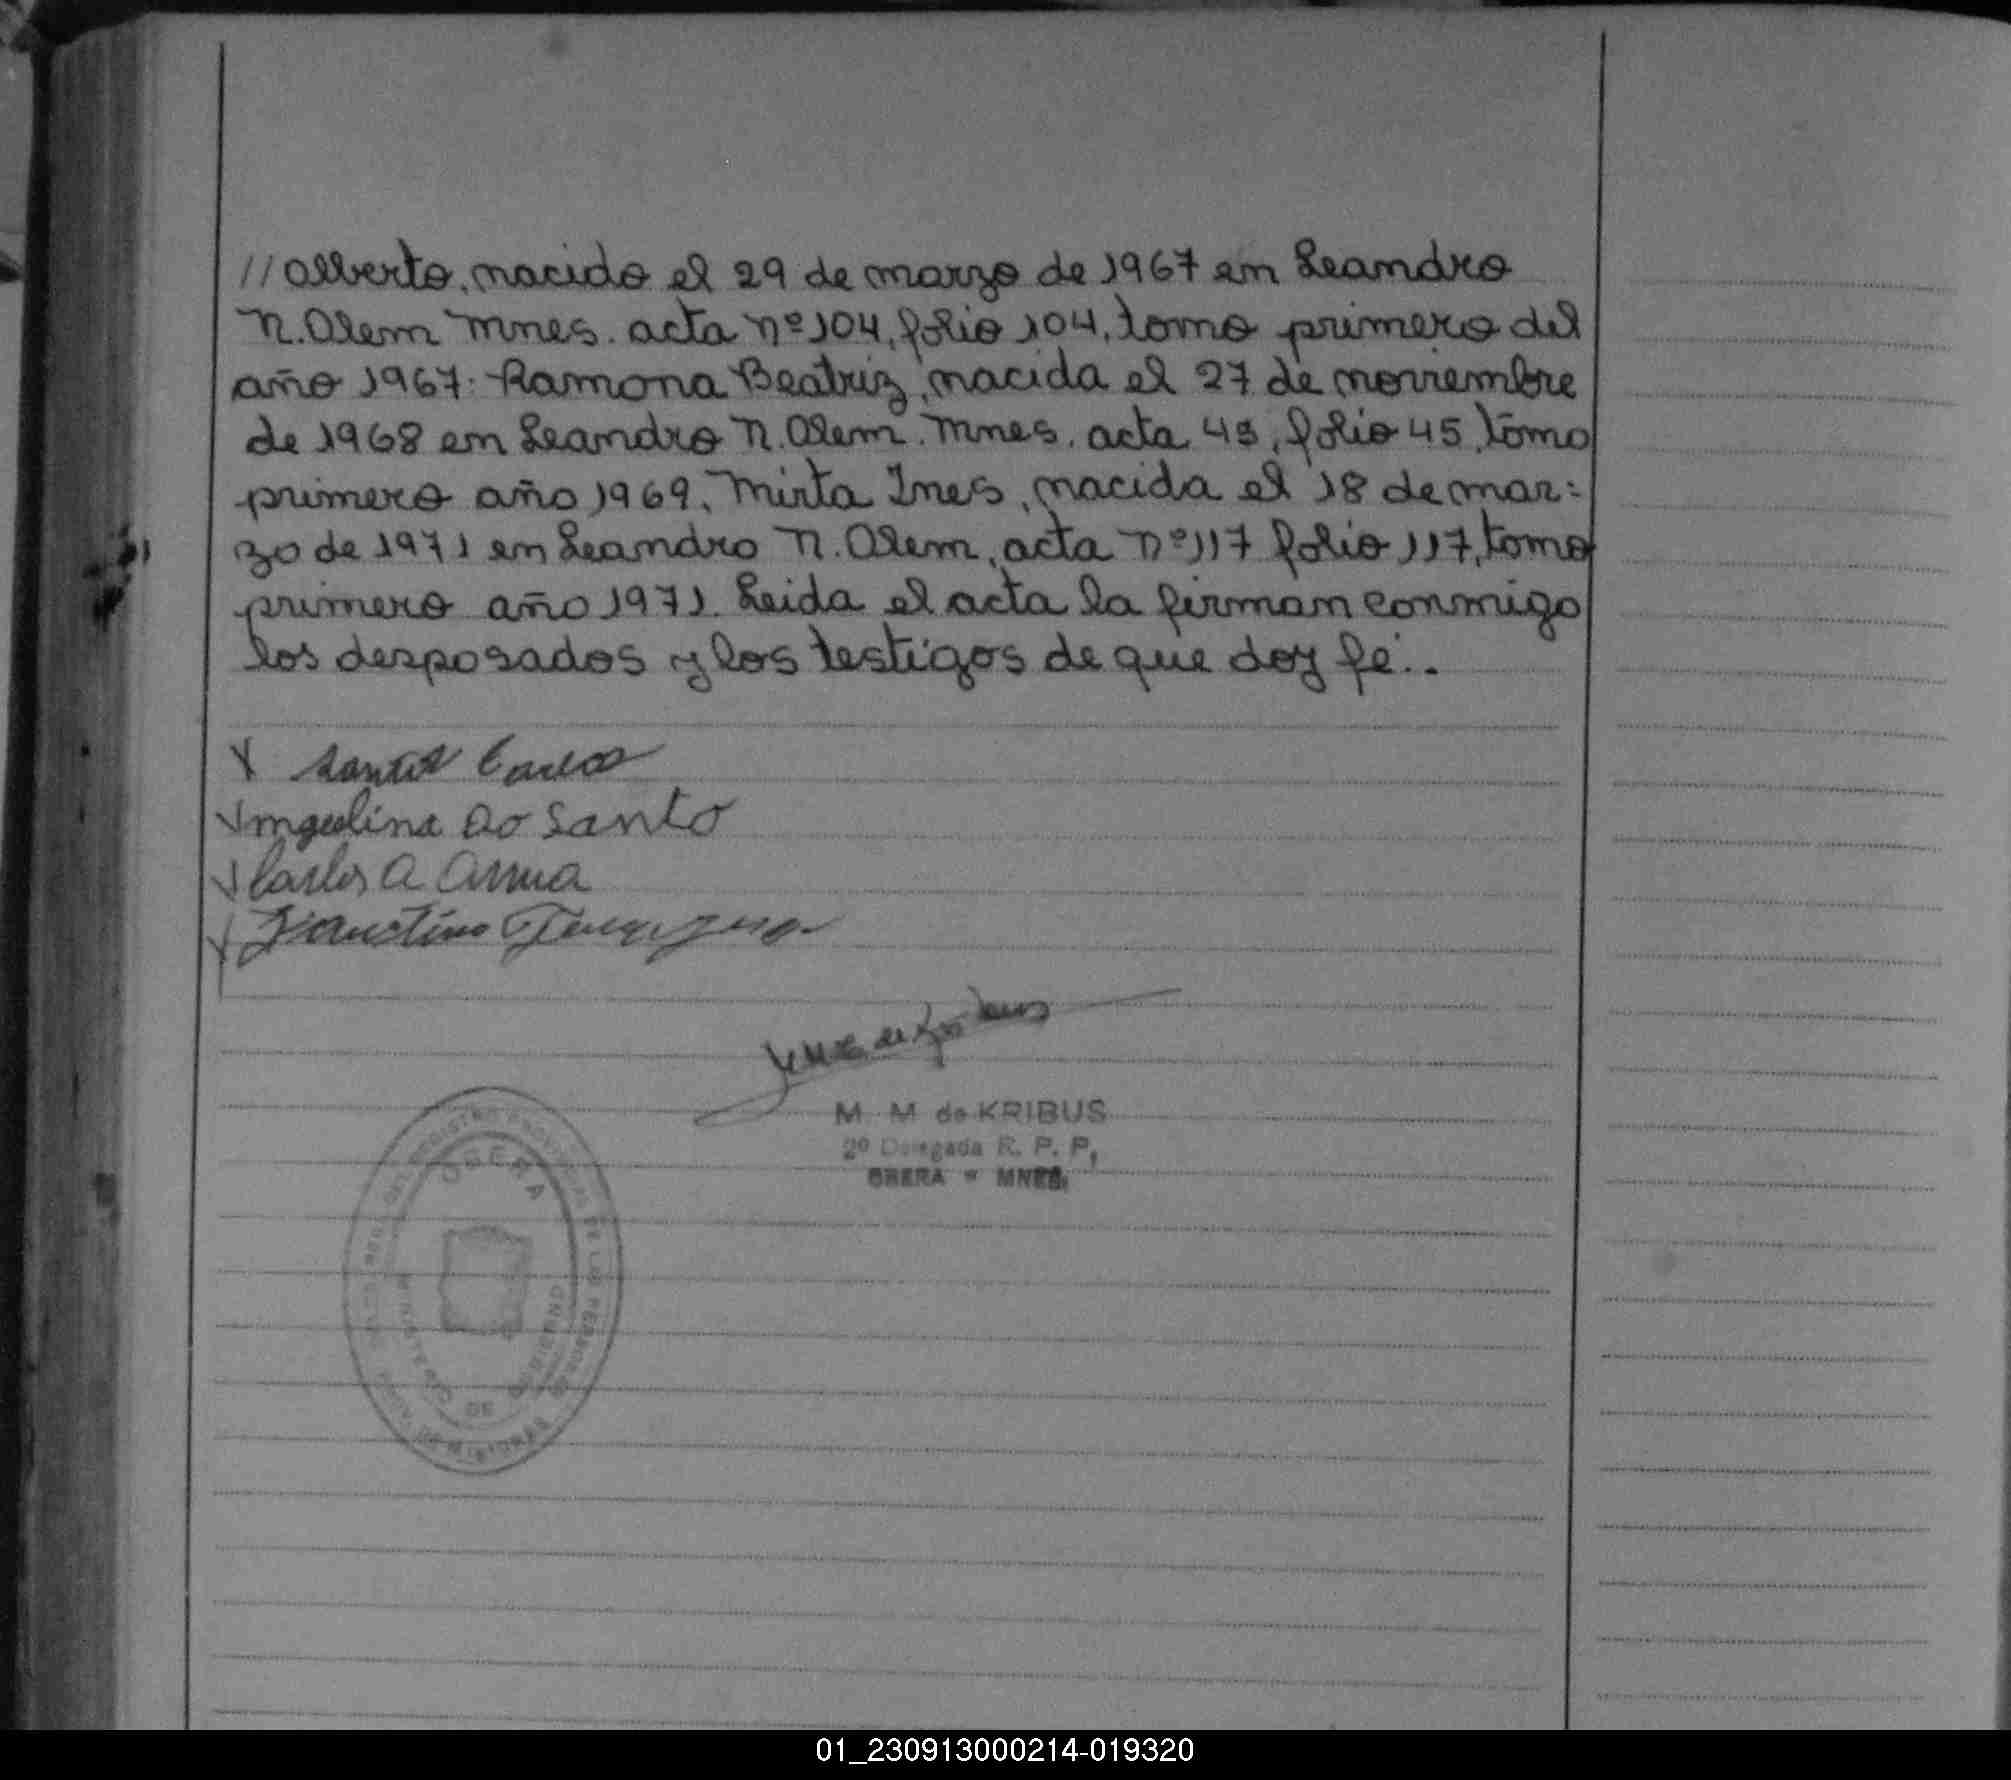 //Alberto, nacido el 29 de marzo de 1967 en Leandro
N. Alem Mnes. acta nº 104, folio 104, tomo primero del
año 1967: Ramona Beatriz, nacida el 27 de noviembre
de 1968 en Leandro N. Alem. Mnes. acta 45, folio 45, tomo
primero año 1969, Mirta Ines, nacida el 18 de mar=
zo de 1971 en Leandro N. Alem, acta nº 117 folio 117, tomo
primero año 1971. Leida el acta la firman conmigo
los desposados y los testigos de que doy fé..
Carlos
Do Santo
Carlos A
Faustino
M. M de KRIBUS
2º Delegada R. P. P,
OBERA - MNES.
REGISTRO PROVINCIAL DE LAS PERSONAS
OBERA
MINISTERIO DE GOBIERNO
MISIONES
01_230913000214-019320